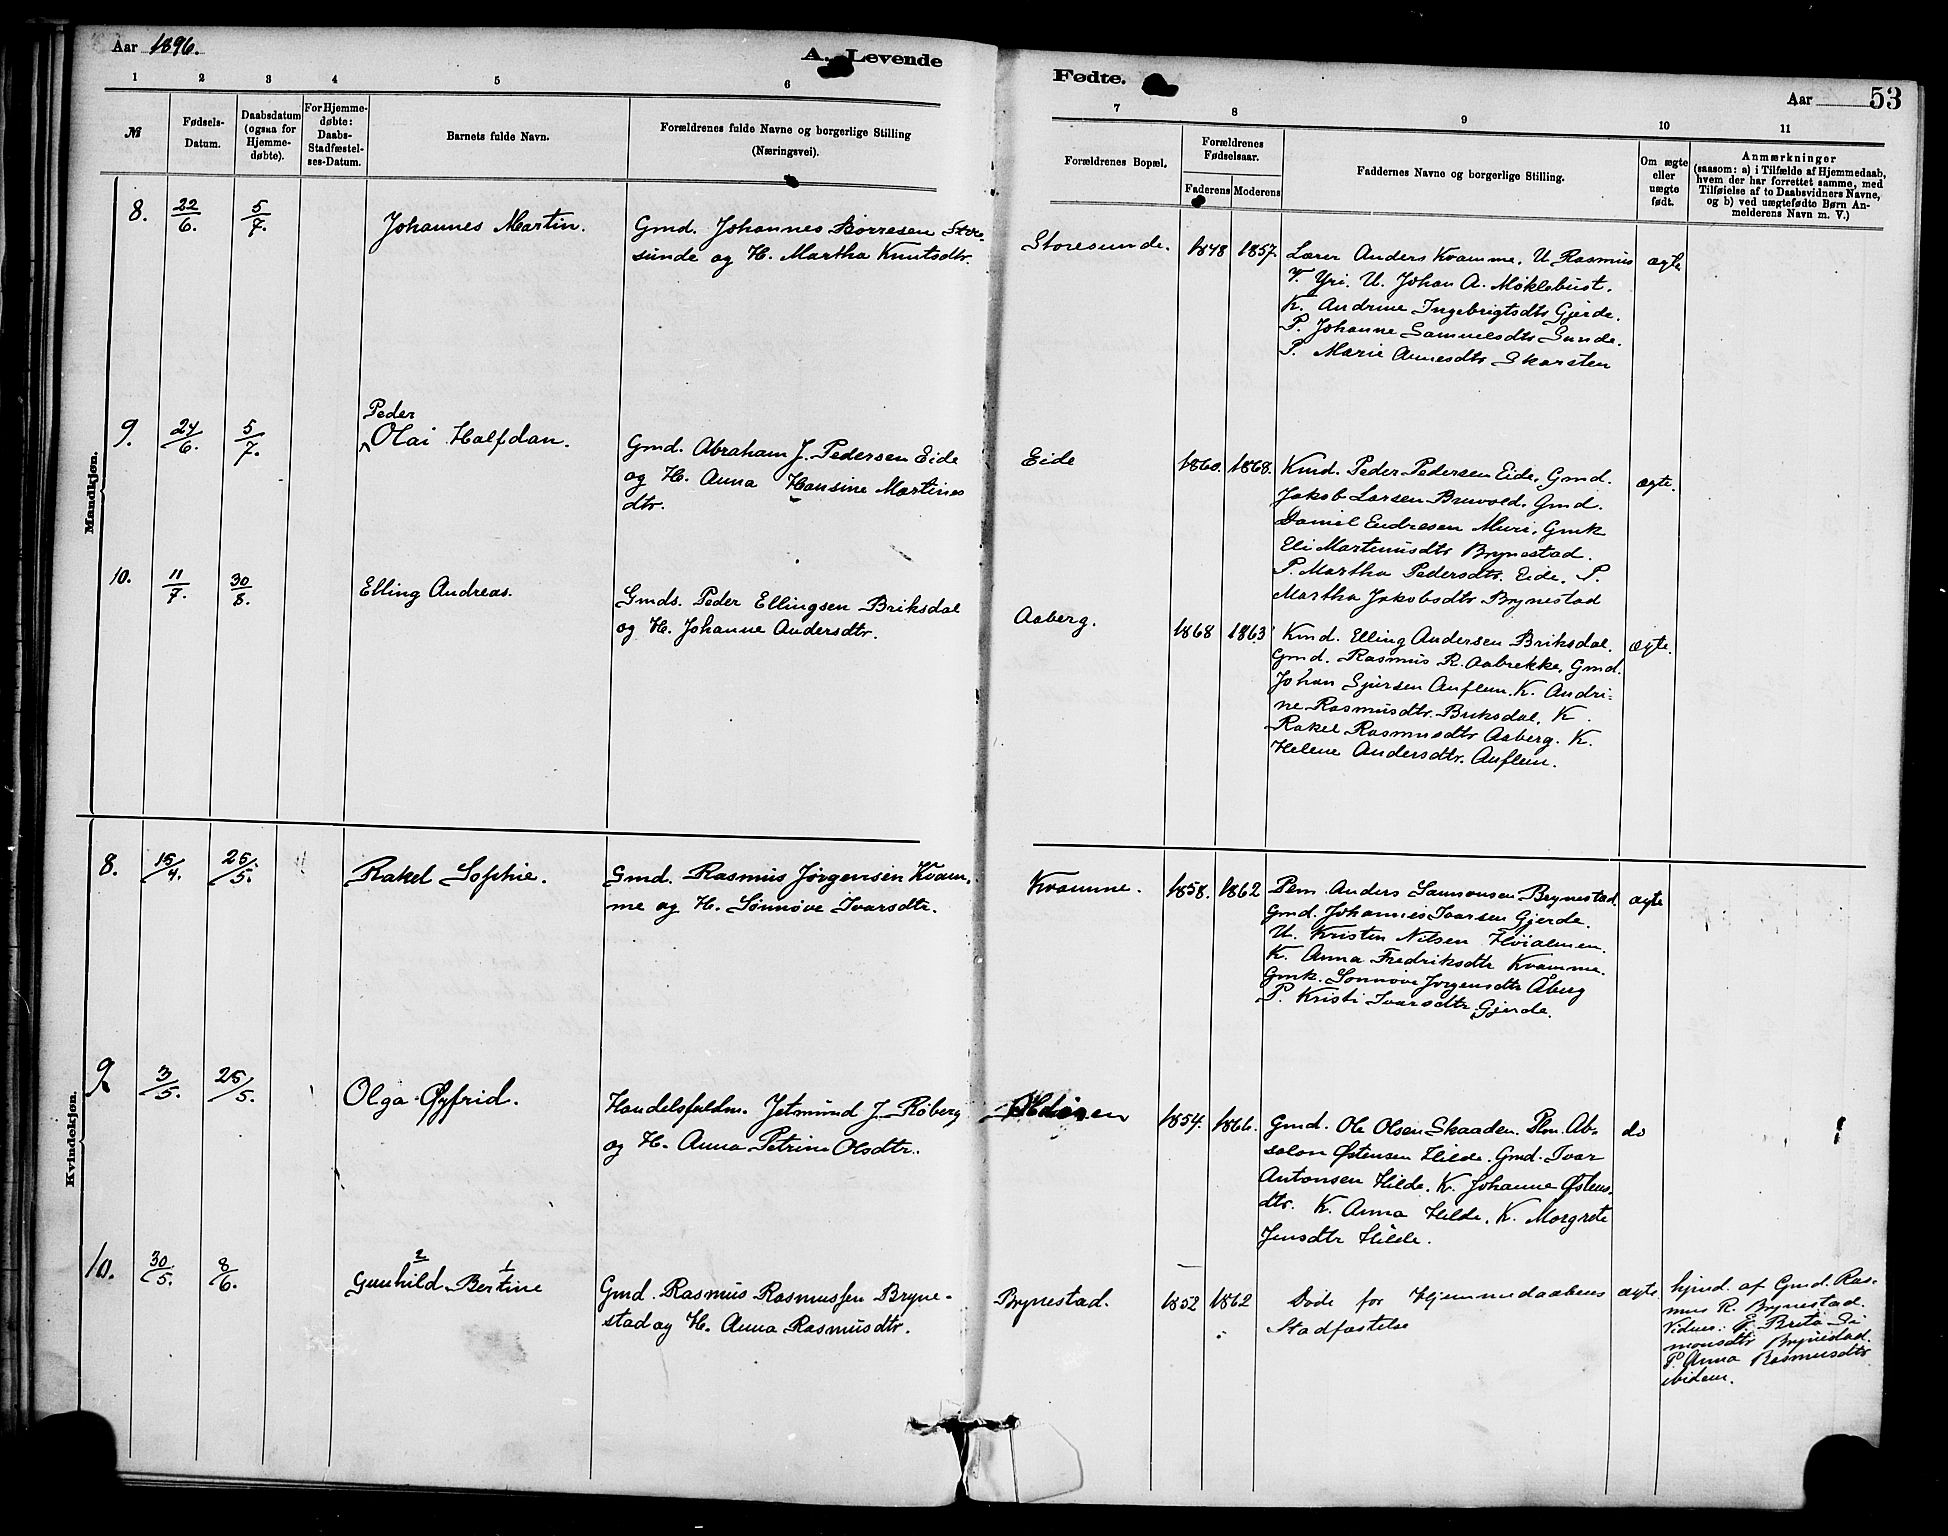 Aar 1896.
A. Levende
Fødte.
Aar
53
1 2 3 4 5 6 7 8 9 10 11
№
Fødsels-
Datum.
Daabsdatum
(ogsaa for
Hjemme-
døbte).
For Hjemme-
døbte:
Daabs-
Stadfæstel-
ses-Datum.
Barnets fulde Navn.
Forældrenes fulde Navne og borgerlige Stilling
(Næringsvei).
Forældrenes Bopæl.
Forældrenes
Fødselsaar.
Faderens Moderens
Faddernes Navne og borgerlige Stilling.
Om ægte
eller
uægte
født.
Anmærkninger
(saasom: a) i Tilfælde af Hjemmedaab,
hvem der har forrettet samme, med
Tilføielse af to Daabsvidners Navne,
og b) ved uægtefødte Børn An-
melderens Navn m. V.)
Mandkjøn.
8. 22/6. 5/7.
Johannes Martin.
Gmd. Johannes Børresen Store-
sunde og H. Martha Knutsdtr.
Storesunde. 1848 1857.
Lærer Anders Kvamme. U. Rasmus
T. Yri. U. Johan A. Møklebust.
K. Andrine Ingebrigtsdtr Gjerde.
P. Johanne Samuelsdtr Sunde.
P. Marie Annesdtr Skarsten
ægte
9. 24/6. 5/7.
Peder
Olai Halfdan.
Gmd. Abraham J. Pedersen Eide
og H. Anna Hansine Martines
dtr.
Eide 1860. 1868.
Kmd. Peder Pedersen Eide, Gmd.
Jakob Larsen Bruvold. Gmd.
Daniel Endresen Muri, Gmk
Eli Martinusdtr Brynestad.
P. Martha Pedersdtr. Eide, P.
Martha Jakobsdtr Brynestad
ægte.
10. 11/7. 30/8.
Elling Andreas.
Gmds. Peder Ellingsen Briksdal
og H. Johanne Andersdtr.
Aaberg. 1868 1863
Kmd. Elling Andersen Briksdal.
Gmd. Rasmus R. Aabrekke, Gmd.
Johan Sjursen Auflem. K. Andri-
ne Rasmusdtr. Briksdal, K.
Rakel Rasmusdtr Aaberg. K.
Helene Andersdtr. Auflem.
ægte.
Kvindekjøn.
8. 15/4. 25/5.
Rakel Sophie.
Gmd. Rasmus Jørgensen Kvam-
me og H. Sønnøve Ivarsdtr.
Kvamme. 1858. 1862
Pem. Anders Samsonsen Brynestad.
Gmd. Johannes Ivarsen Gjerde.
U. Kristen Nilsen Høialmen.
K. Anna Fredriksdtr Kvamme.
Gmk. Sønnøve Jørgensdtr Åberg
P. Kristi Ivarsdtr. Gjerde.
ægte
9. 3/5. 25/5.
Olga Øyfrid.
Handelsfuldm. Jetmund J. Røberg
og H. Anna Petrine Olsdtr.
1854. 1866.
Gmd. Ole Olsen Skaaden. Plm. Ab-
salon Østensen Hilde. Gmd. Ivar
Antonsen Hilde. K. Johanne Østens-
dtr. K. Anna Hilde. K. Margrete
Jensdtr Hilde.
do
10. 30/5. 8/6.
2 1
Gunhild Bertine
Gmd. Rasmus Rasmussen Bryne-
stad og H. Anna Rasmusdtr.
Brynestad. 1852 1862
Døde før Hjemmedaabens
Stadfæstelse
ægte.
hjmd. af Gmd. Ras-
mus R. Brynestad.
Vidner: E. Brita Si
monsdtr Brynestad.
P. Anna Rasmusdtr
ibidem.